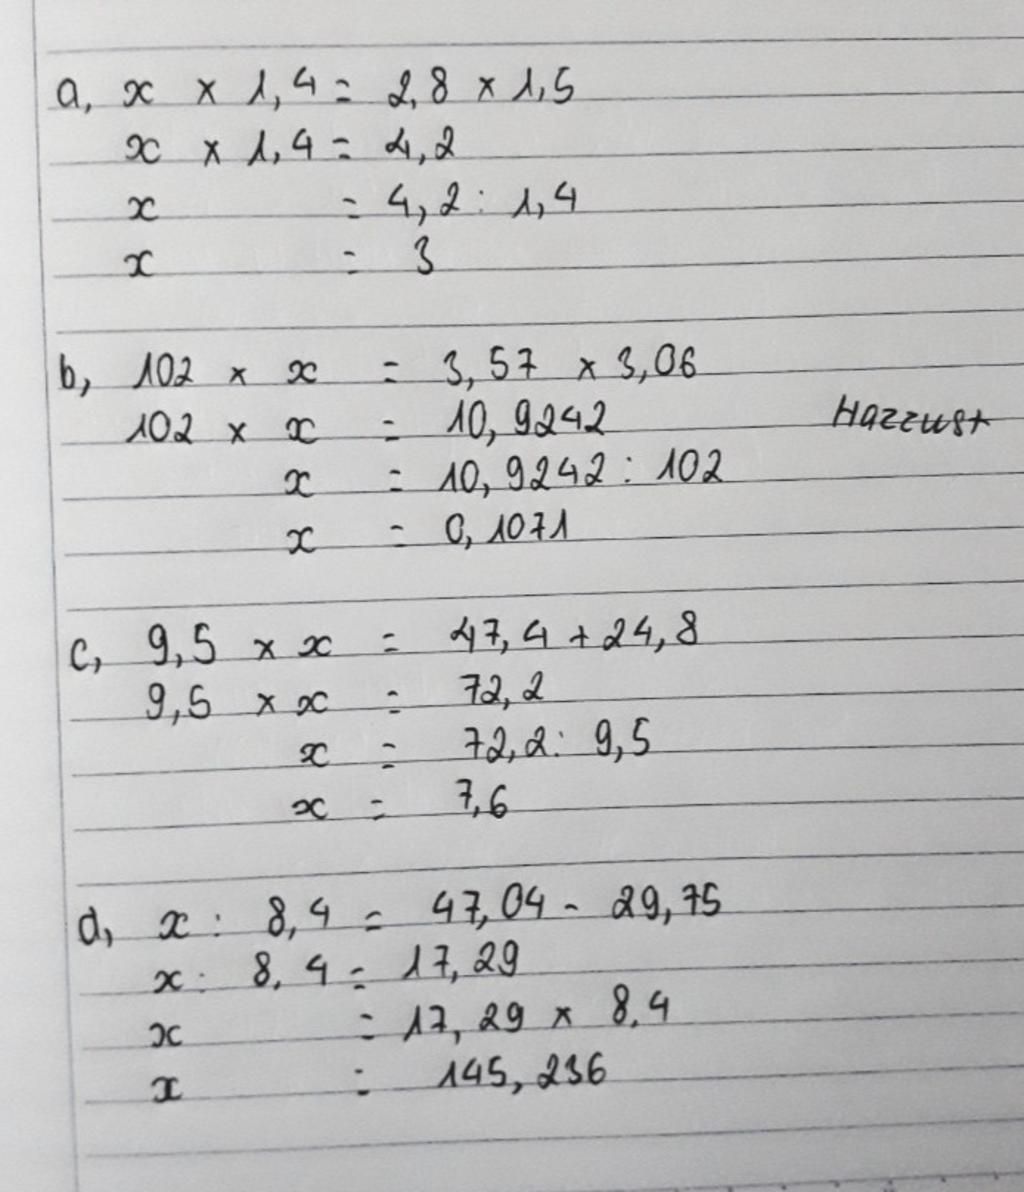 a, x × 1,4 = 2,8 × 1,5
x × 1,4 = 4,2
x = 4,2 : 1,4
x = 3
b, 102 × x = 3,57 × 3,06
102 × x = 10,9242 Hazzust
x = 10,9242 : 102
x = 0,1071
c, 9,5 × x = 47,4 + 24,8
9,5 × x = 72,2
x = 72,2 : 9,5
x = 7,6
d, x : 8,4 = 47,04 - 29,75
x : 8,4 = 17,29
x = 17,29 × 8,4
x = 145,236